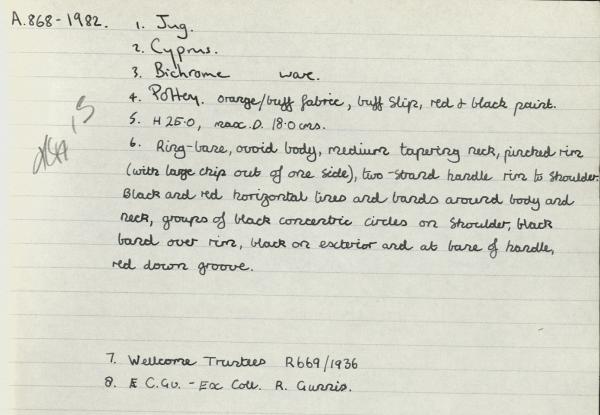 A.868-1982. 1. Jug.
2. Cyprus.
3. Bichrome ware.
4. Pottery. orange/buff fabric, buff slip, red & black paint.
5. H 25.0, max. D. 18.0 cms.
6. Ring-base, ovoid body, medium tapering neck, pinched rim
(with large chip out of one side), two-strand handle rim to shoulder.
Black and red horizontal lines and bands around body and
neck, groups of black concentric circles on shoulder, black
band over rim, black on exterior and at base of handle,
red down groove.
7. Wellcome Trustees R669/1936
8. C.Gu. - Ex Coll. R. Gunnis.